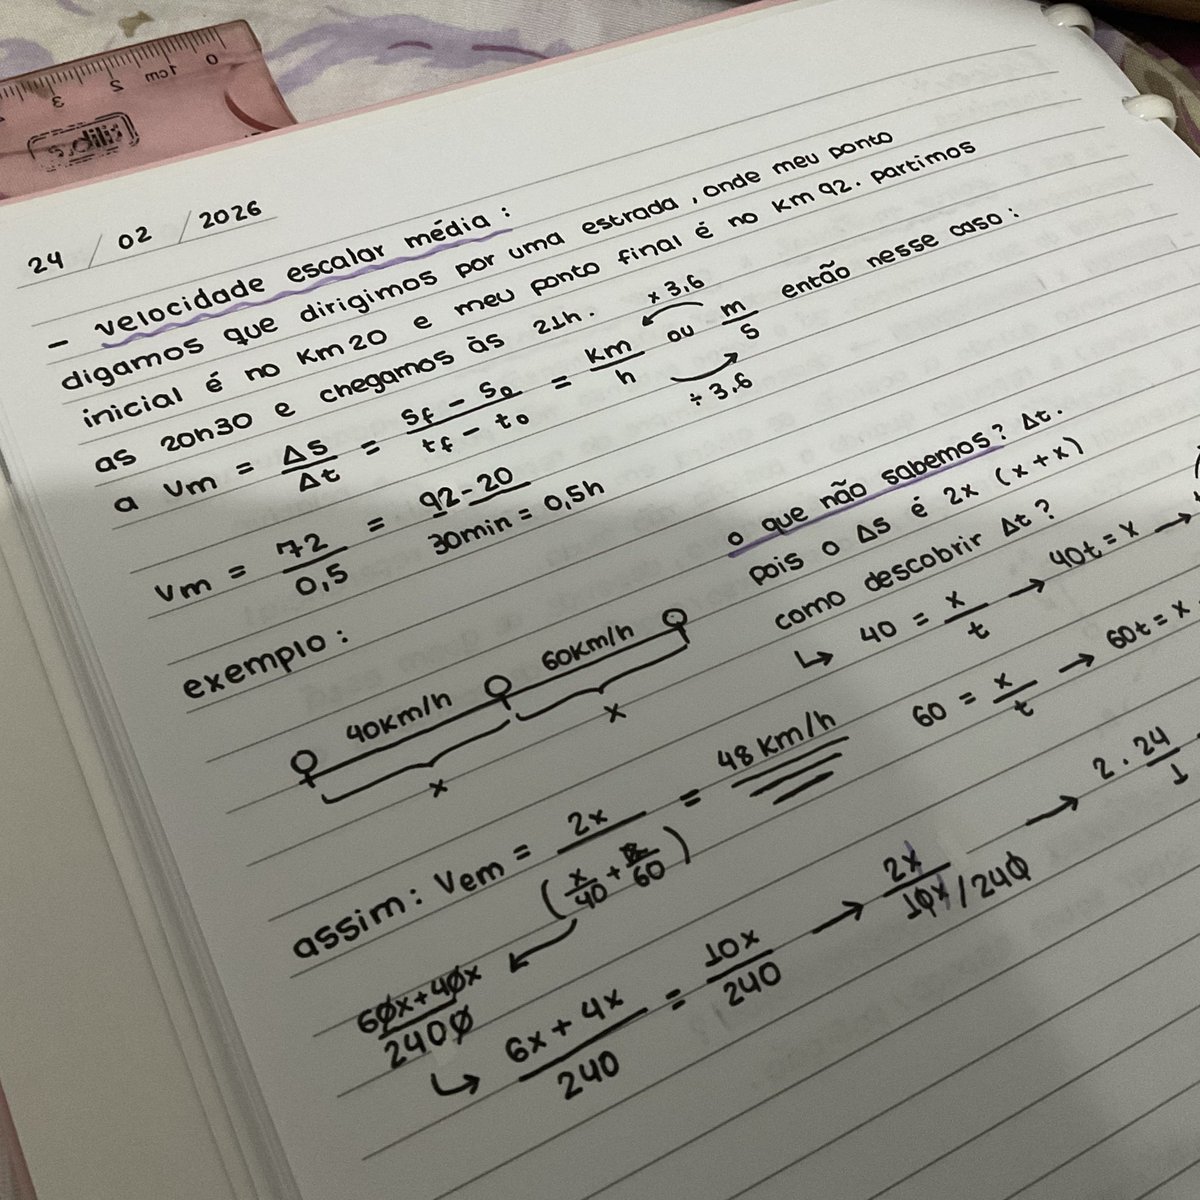 0 1cm 2 3
24 / 02 / 2026
- velocidade escalar média:
digamos que dirigimos por uma estrada, onde meu ponto
inicial é no Km 20 e meu ponto final é no Km 92. partimos
as 20h30 e chegamos às 21h.
× 3,6
a Vm = ΔS/Δt = Sf - S0/tf - t0 = Km/h ou m/s então nesse caso:
÷ 3,6
Vm = 72/0,5 = 92-20/30min = 0,5h
exemplo:
40Km/h 60Km/h
x x
o que não sabemos? Δt.
pois o ΔS é 2x (x+x)
como descobrir Δt?
↳ 40 = x/t → 40t = x →
60 = x/t → 60t = x
assim: Vem = 2x/(x/40 + /60) = 48 Km/h
60x+40x/2400
↳ 6x + 4x/240 = 10x/240 → 2x/10x/240 → 2 . 24/1